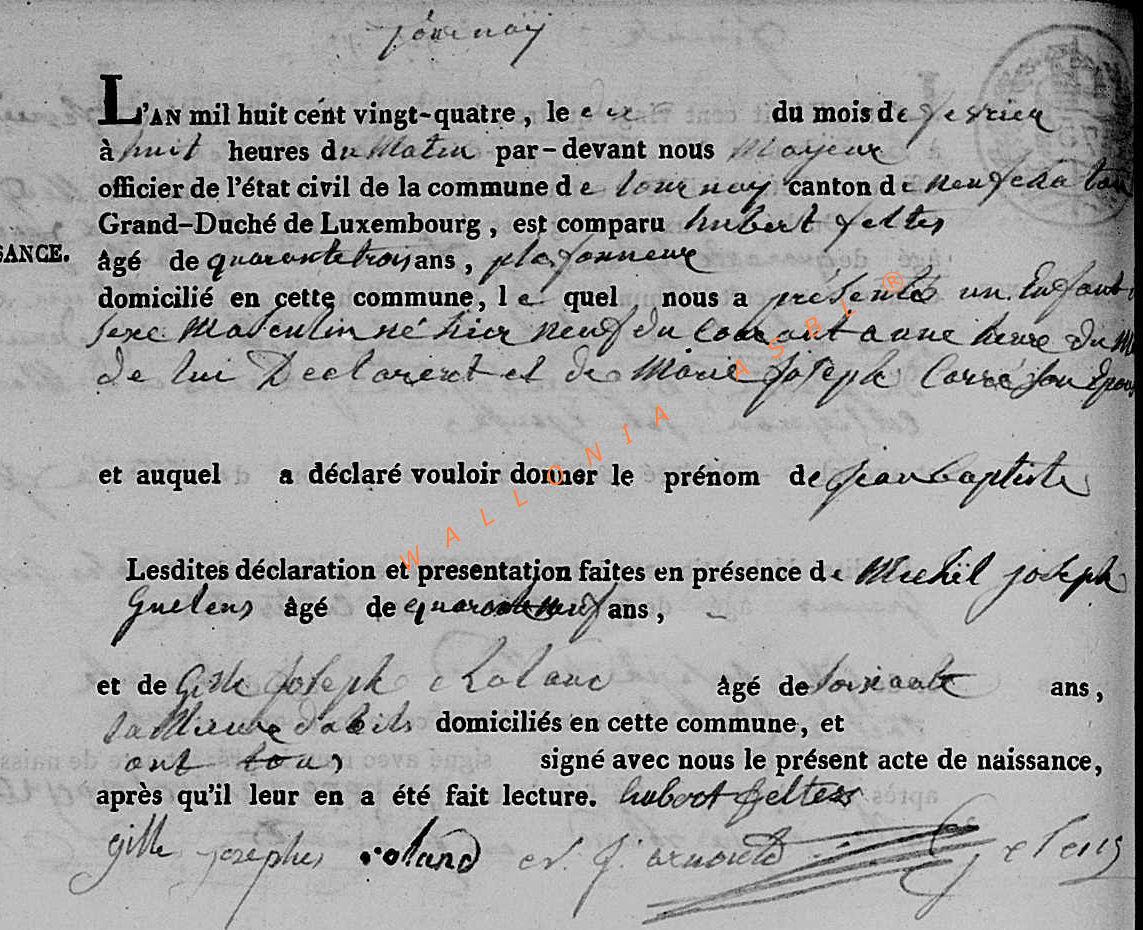 Tournay
L'AN mil huit cent vingt-quatre, le dix du mois de fevrier
à huit heures du Matin par-devant nous Mayeur
officier de l'état civil de la commune de tournay canton de neufchatau
Grand-Duché de Luxembourg, est comparu hubert feltes
SANCE. âgé de quarante trois ans, plafonneur
domicilié en cette commune, le quel nous a présenté un Enfant
sexe Masculin né hier neuf du courant a une heure du M
de lui Declarent et de Marie Joseph Carré Son Epous
et auquel a déclaré vouloir donner le prénom de jean baptiste
Lesdites déclaration et presentation faites en présence de Michël joseph
Guelens âgé de quarante neuf ans,
et de Gille Joseph Roland âgé de soixante ans,
tallieure d'abits domiciliés en cette commune, et
ont tous signé avec nous le présent acte de naissance,
après qu'il leur en a été fait lecture. hubert feltess
gille josephes roland J. arnould Gelens
WALLONIA ASBL ®